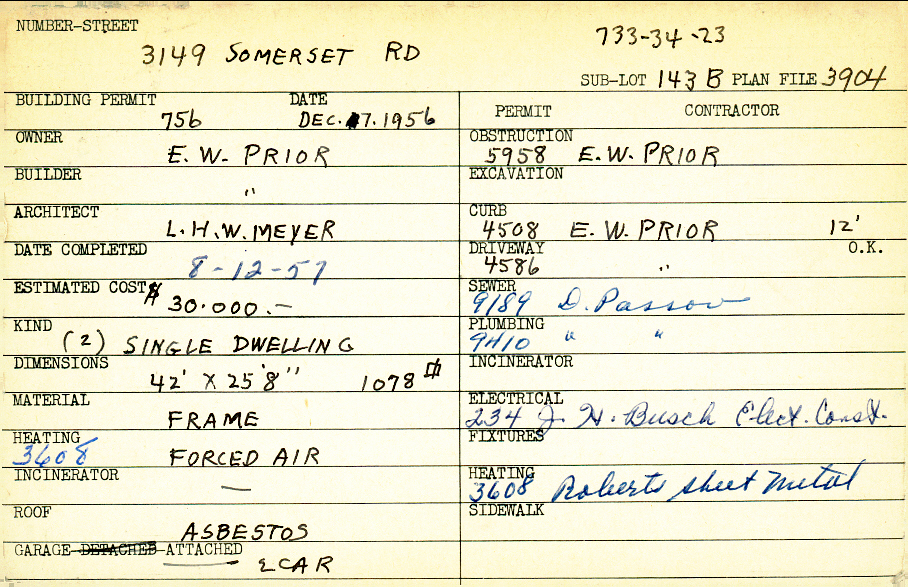 NUMBER-STREET
3149 SOMERSET RD
733-34-23
SUB-LOT 143 B PLAN FILE 3904
BUILDING PERMIT DATE
756 DEC. 7.1956
OWNER
E. W. PRIOR
BUILDER
"
ARCHITECT
L.H.W.MEYER
DATE COMPLETED
8-12-57
ESTIMATED COST $
30.000.—
KIND
(2) SINGLE DWELLING
DIMENSIONS
42' X 25'8" 1078
MATERIAL
FRAME
HEATING
3608 FORCED AIR
INCINERATOR
—
ROOF
ASBESTOS
GARAGE-DETACHED-ATTACHED
2 CAR
PERMIT CONTRACTOR
OBSTRUCTION
5958 E.W. PRIOR
EXCAVATION
CURB
4508 E. W. PRIOR 12'
DRIVEWAY O.K.
4586 "
SEWER
9189 D. Passov
PLUMBING
9410 " "
INCINERATOR
ELECTRICAL
234 J. H. Busch Elect. Const.
FIXTURES
HEATING
3608 Roberts Sheet Metal
SIDEWALK